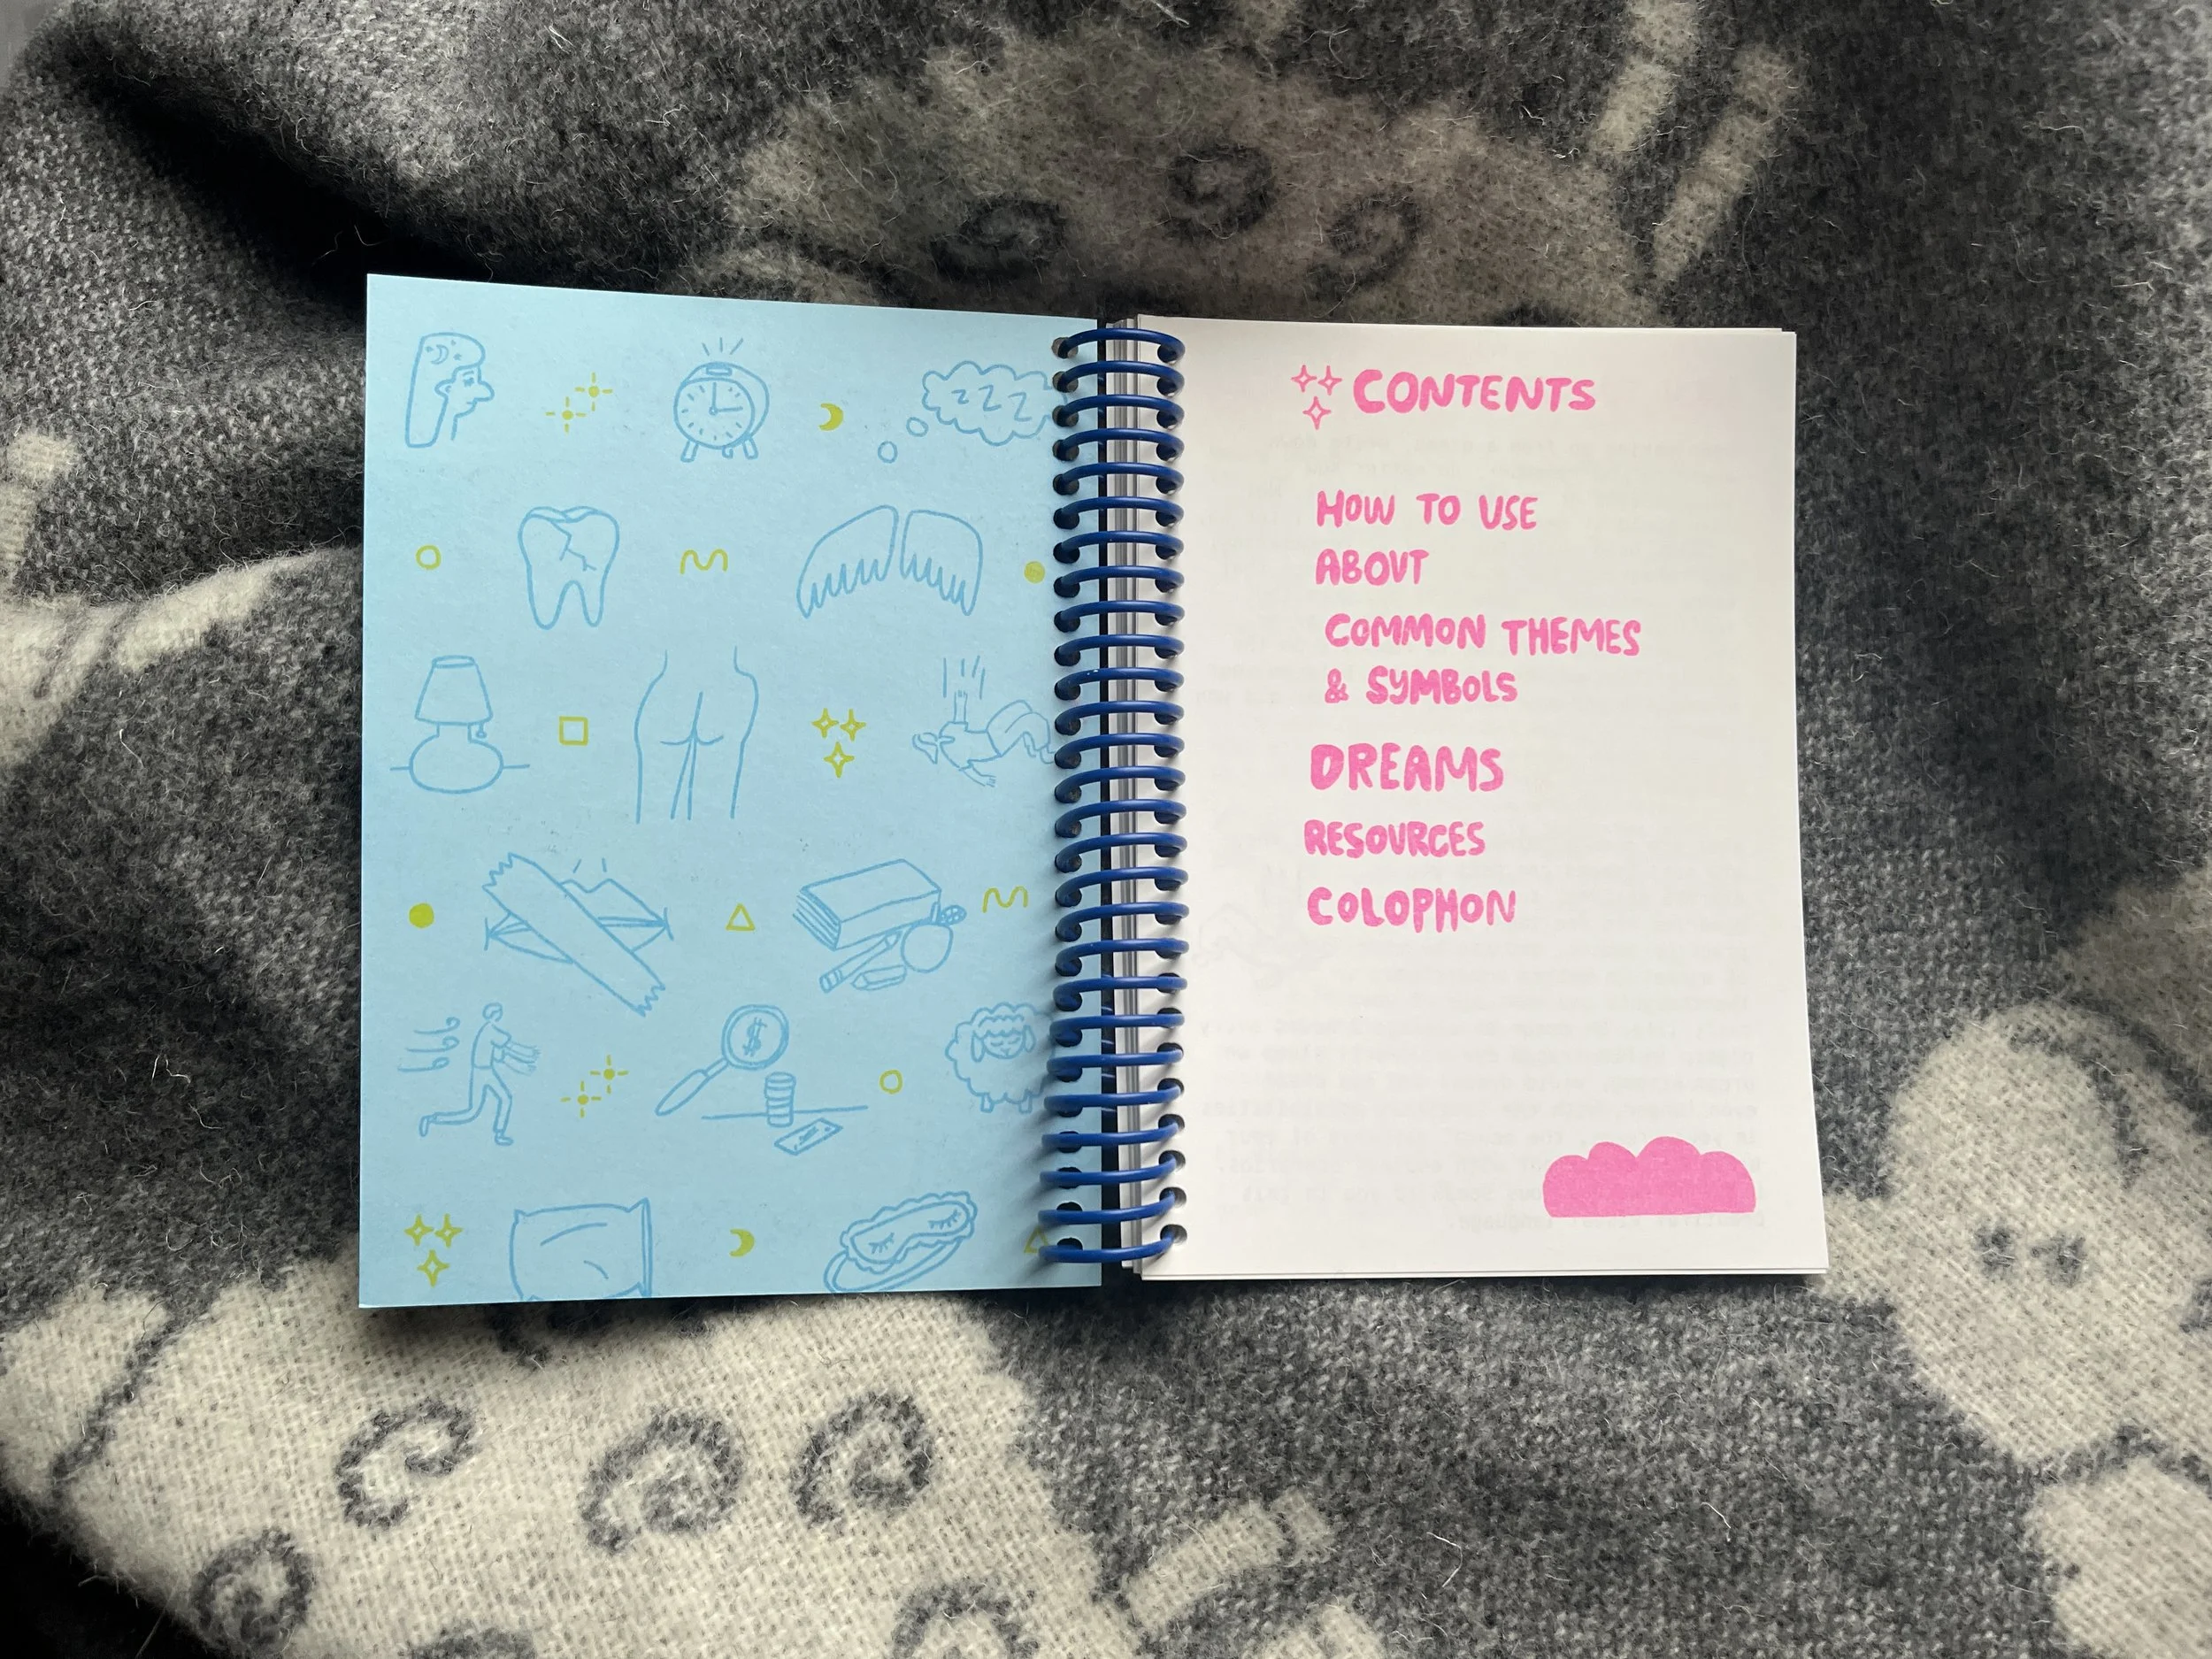 Z Z Z
$
CONTENTS
HOW TO USE
ABOUT
COMMON THEMES
& SYMBOLS
DREAMS
RESOURCES
COLOPHON